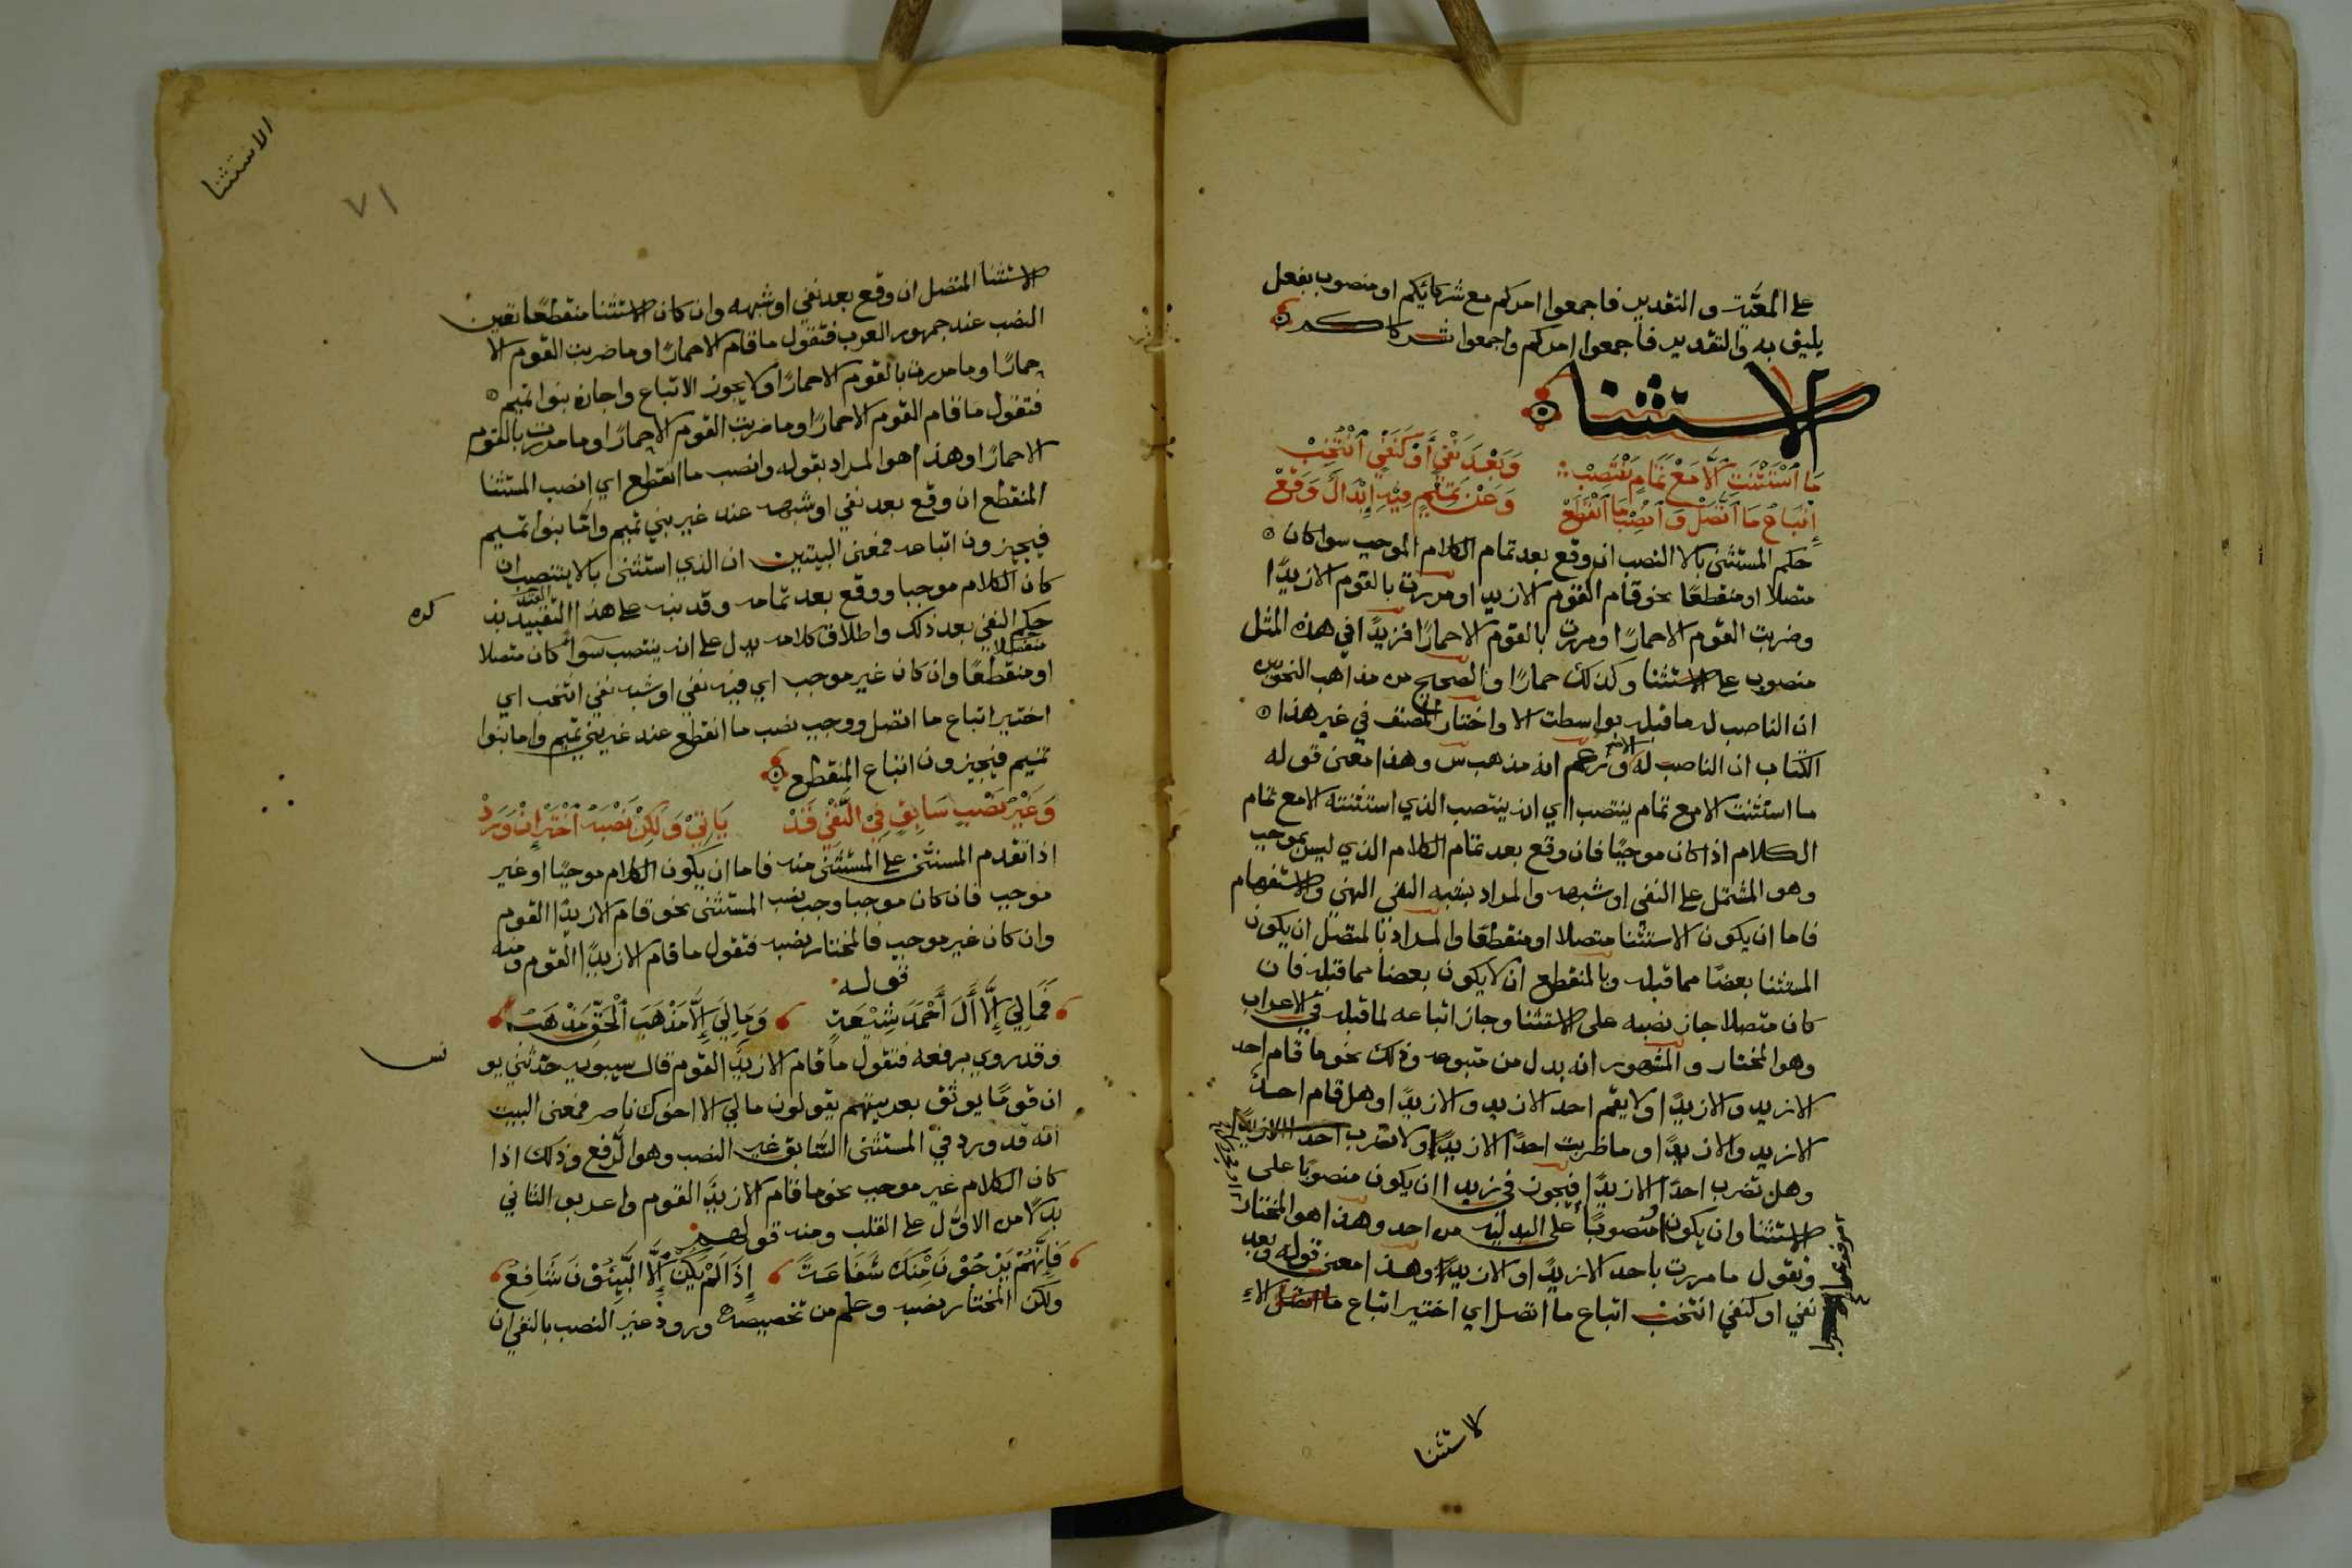 على المعية والتقدير فاجمعوا امركم مع شركائكم او منصوب بفعل
يليق به والتقدير فاجمعوا امركم واجمعوا شركاكم
الاستثنا
مَا ٱسْتَثْنَتِ ٱلَّا مَعْ تَمَامٍ يَنْتَصِبْ وَبَعْدَ نَفْيٍ أَوْ كَنَفْيٍ ٱنْتُخِبْ
إِتْبَاعُ مَا ٱتَّصَلْ وَٱنْصِبْ مَا ٱنْقَطَعْ وَعَنْ تَمِيمٍ فِيْهِ إِبْدَالٌ وَقَعْ
حكم المستثنى بالا النصب ان وقع بعد تمام الكلام الموجب سوا كان
متصلا او منقطعًا نحو قام القوم الا زيدا ومررت بالقوم الا زيدًا
وضربت القوم الا حمارًا ومررت بالقوم الا حمارًا فزيدًا في هذه المثل
منصوب على الاستثنا وكذلك حمارًا والصحيح من مذاهب النحويين
ان الناصب له ما قبله بواسطت الا واختار المصنف في غير هذا
الكتاب ان الناصب له الا وزعم انه مذهب س وهذا معنى قوله
ما استثنت الا مع تمام ينتصب اي انه ينتصب الذي استثنته الا مع تمام
الكلام اذا كان موجبًا فان وقع بعد تمام الكلام الذي ليس بموجب
وهو المشتمل على النفي او شبهه والمراد بشبه النفي النهي والاستفهام
فاما ان يكون الاستثنا متصلا او منقطعًا والمراد بالمتصل ان يكون
المستثنا بعضًا مما قبله وبالمنقطع ان لا يكون بعضا مما قبله فان
كان متصلا جاز نصبه على الاستثنا وجاز اتباعه لما قبله في الاعراب
وهو المختار والمشهور انه بدل من متبوعه وذلك نحو ما قام احد
الا زيد والا زيدًا ولا يقم احد الا زيد والا زيدًا وهل قام احد
الا زيد والا زيدًا وما ضربت احدًا الا زيدًا ولا تضرب احدا الا زيدًا
وهل تضرب احدًا الا زيدًا فيجوز في زيدا ان يكون منصوبًا على
الاستثنا وان يكون منصوبًا على البدلية من احد وهذا هو المختار
وتقول ما مررت باحد الا زيدٍ او الا زيدًا وهذا معنى قوله وبعد
نفي او كنفي انتخب اتباع ما اتصل اي اختير اتباع ما اتصل
لاستثنا
الاستثنا
٧١
الاستثنا المتصل ان وقع بعد نفي او شبهه وان كان الاستثنا منقطعًا تعين
النصب عند جمهور العرب فتقول ما قام الا حمارًا وما ضربت القوم الا
حمارًا وما مررت بالقوم الا حمارًا ولا يجوز الاتباع واجازه بنوا تميم
فتقول ما قام القوم الا حمارًا وما ضربت القوم الا حمارًا وما مررت بالقوم
الا حمارًا وهذا هو المراد بقوله وانصب ما انقطع اي انصب المستثنا
المنقطع ان وقع بعد نفي او شبهه عند غير بني تميم واما بنوا تميم
فيجيزون اتباعه فمعنى البيتين ان الذي استثنى بالا ينتصب ان
كان الكلام موجبا ووقع بعد تمامه وقد نبه على هذا التقييد بذ
كره
حكم النفي بعد ذلك واطلاق كلامه يدل على انه ينتصب سوا كان متصلا
او منقطعًا وان كان غير موجب اي فيه نفي او شبه نفي انتخب اي
اختير اتباع ما اتصل ووجب نصب ما انقطع عند غير بني تميم واما بنوا
تميم فيجيزون اتباع المنقطع
وَغَيْرُ نَصْبِ سَابِقٍ فِي النَّفْيِ قَدْ يَأْتِي وَلٰكِنْ نَصْبَهُ ٱخْتَرْ إِنْ وَرَدْ
اذا تقدم المستثنى على المستثنى منه فاما ان يكون الكلام موجبًا او غير
موجب فان كان موجبا وجب نصب المستثنى نحو قام الا زيدًا القوم
وان كان غير موجب فالمختار نصبه فتقول ما قام الا زيدًا القوم ومنه
قوله
فَمَا لِيَ إِلَّا أَلَ أَحْمَدَ شِيْعَةٌ وَمَا لِيَ إِلَّا مَذْهَبَ ٱلْحَقِّ مَذْهَبُ
وقد روي برفعه فتقول ما قام الا زيدٌ القوم قال سيبويه حدثني يو
نس
ان قومًا يوثق بعربيتهم يقولون ما لي الا اخوك ناصر فمعنى البيت
انه قد ورد في المستثنى السابق غير النصب وهو الرفع وذلك اذا
كان الكلام غير موجب نحو ما قام الا زيدٌ القوم واعربوا الثاني
بدلًا من الاول على القلب ومنه قولهم
فَإِنَّهُمْ يَرْجُوْنَ مِنْكَ شَفَاعَةً إِذَا لَمْ يَكُنْ إِلَّا النَّبِيُّوْنَ شَافِعُ
ولكن المختار نصبه وعلم من تخصيصه ورود غير النصب بالنفي ان